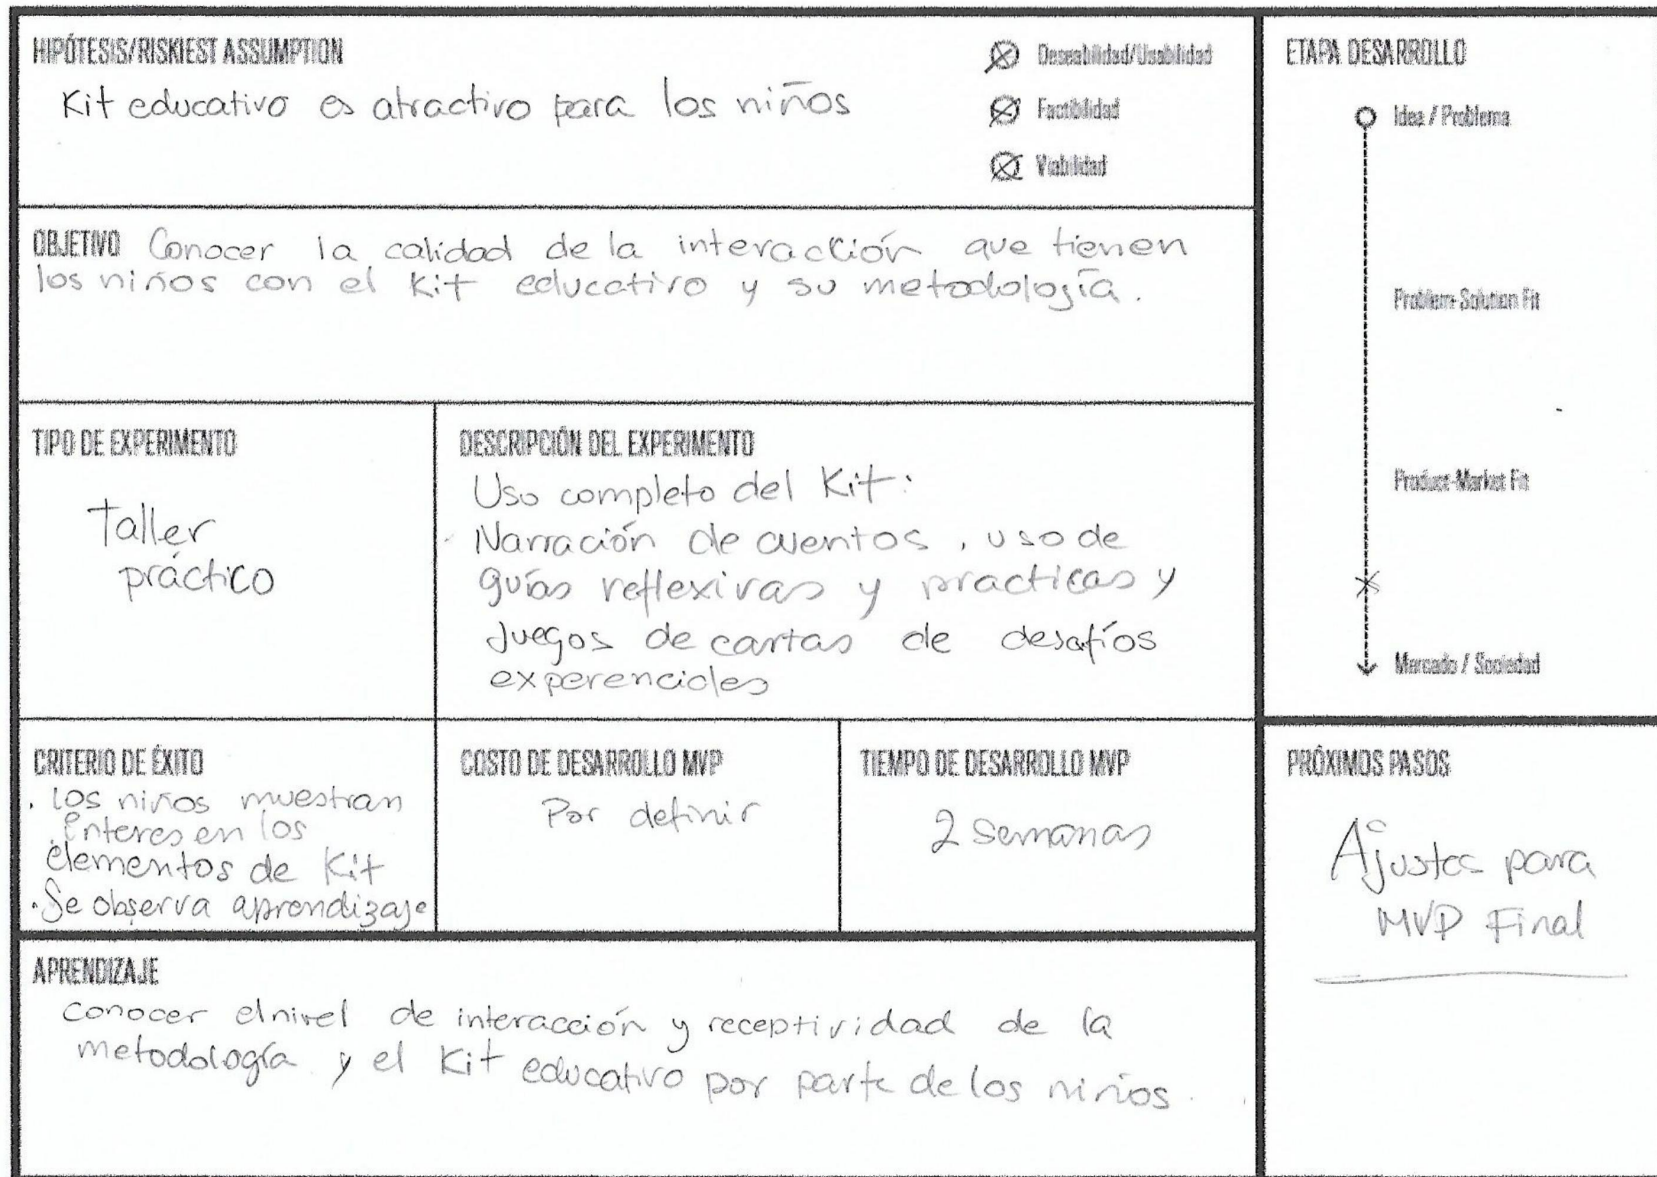 HIPÓTESIS/RISKIEST ASSUMPTION
Kit educativo es atractivo para los niños
Deseabilidad/Usabilidad
Factibilidad
Viabilidad
OBJETIVO Conocer la calidad de la interacción que tienen
los niños con el Kit educativo y su metodología.
TIPO DE EXPERIMENTO
Taller
práctico
DESCRIPCIÓN DEL EXPERIMENTO
Uso completo del Kit:
Narración de cuentos, uso de
guías reflexivas y practicas y
Juegos de cartas de desafíos
experenciales
CRITERIO DE ÉXITO
. los niños muestran
enteres en los
elementos de Kit
. Se observa aprendizaje
COSTO DE DESARROLLO MVP
Por definir
TIEMPO DE DESARROLLO MVP
2 semanas
APRENDIZAJE
conocer el nivel de interacción y receptividad de la
metodología y el Kit educativo por parte de los niños.
ETAPA DESARROLLO
Idea / Problema
Problem-Solution Fit
Product-Market Fit
Mercado / Sociedad
PRÓXIMOS PASOS
Ajustes para
MVP Final